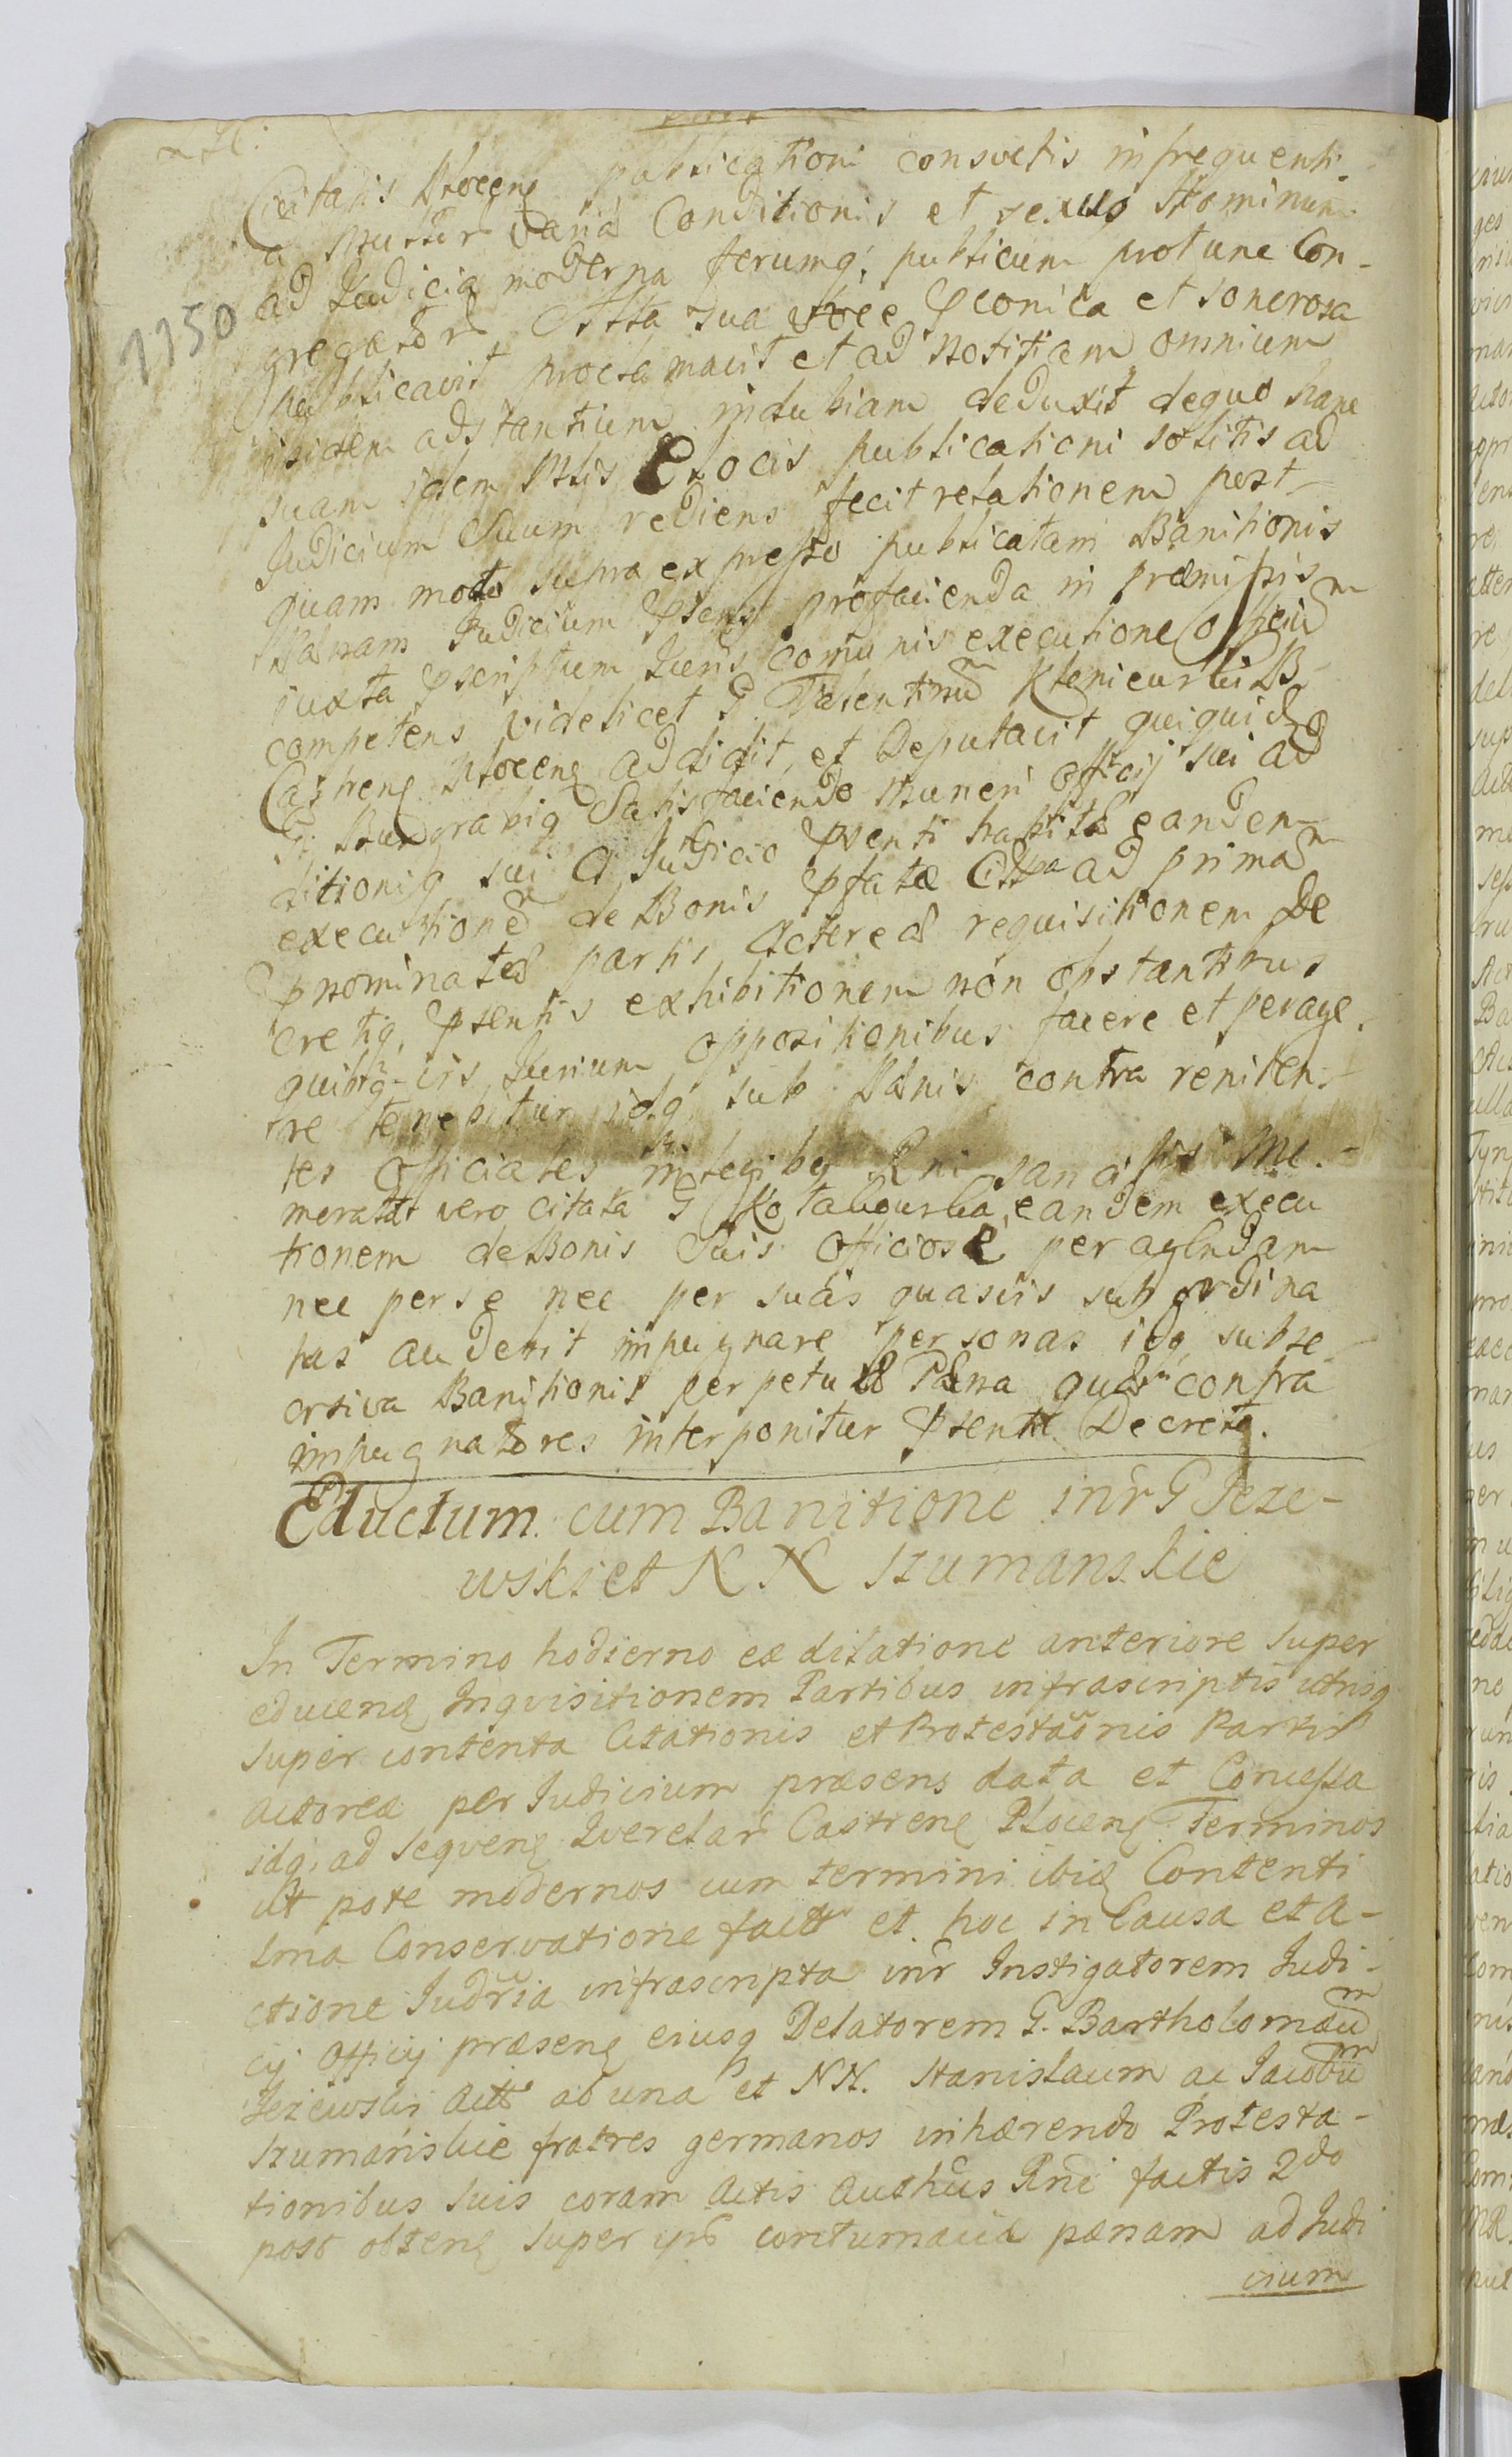 Civitatis Plocenę publicationi consvetis in frequenti.
a Multor̃ varia Conditionis et sexus Hominum
ad Judicia moderna ferumq́; publicum protunc Con-
gregator̃ Alta sua voce Pconica et sonorosa
1150
Publicavit proclamavit et ad Notitiam omnium
ibidem adstantium indubiam deduxit dequo hanc
suam idem Mlis e locis publicationi solitis ad
Judicium Suum rediens fecit relationem post
quam modo supra expresso publicatam Banitionis
Pænam Judicium Psens profacienda in præmissis
juxta Pscriptum Juris comunis executione officiũ
competens videlicet G Valentinũ Klenieurski B
Castrenę Plocenę addidit, et Deputavit quiquidẽ
G. Burgrabię Satisfaciendo Muneri officij sui ad
ditionię sui a Judicio Psenti habitæ eandem
executionẽ de Bonis Pfatæ Cittæ ad primam
Pnominatæ partis Actoreæ requisitionem De
cretię Psentis exhibitionem non obstantibus
quibq-vis Jurium oppositionibus facere et perage.
re tenebitur idq́ sub Pænis contra reniten-
tes officiales in legibę Rni sancitis Me-
morata vero citata G Kotakowska eandem execu
tionem de Bonis Suis officiose peragendam
nec per se nec per suas quasvis subordina
tas audebit impugnare personas idq subse-
crtiva Banitionis perpetuæ Pæna quæ contra
impugnatores interponitur Psentis Decretę.
Eductum cum Banitione inr̃ G Jeze-
wski et N N Szumanskie
In Termino hodierno ex dilatione anteriore super
educenę Inqvisitionem Partibus infrascriptis utrisq
super contenta Citationis et Protestãonis Partis
Actoreæ per Judicium præsens data et Concessa
idq; ad seqvenę Qverelar̃ Castrenę Plocenę Terminos
ut pote modernos cum termini ibidę Contenti
sma Conservatione factt et hoc in Causa et A-
ctione Judr̃ia infrascripta inr̃ Instigatorem Judi-
cij Officij præsenę eiusq Delatorem G. Bartholomæũ
Jeżewski Actt ab una et NN. Stanislaum ac Jacobũ
Szumańskie fratres germanos inhærendo Protesta-
tionibus suis coram Actis Auth̃cis Rni factis 2do
post obtenę super ipõ contumaciæ pænam ad Judi
cium